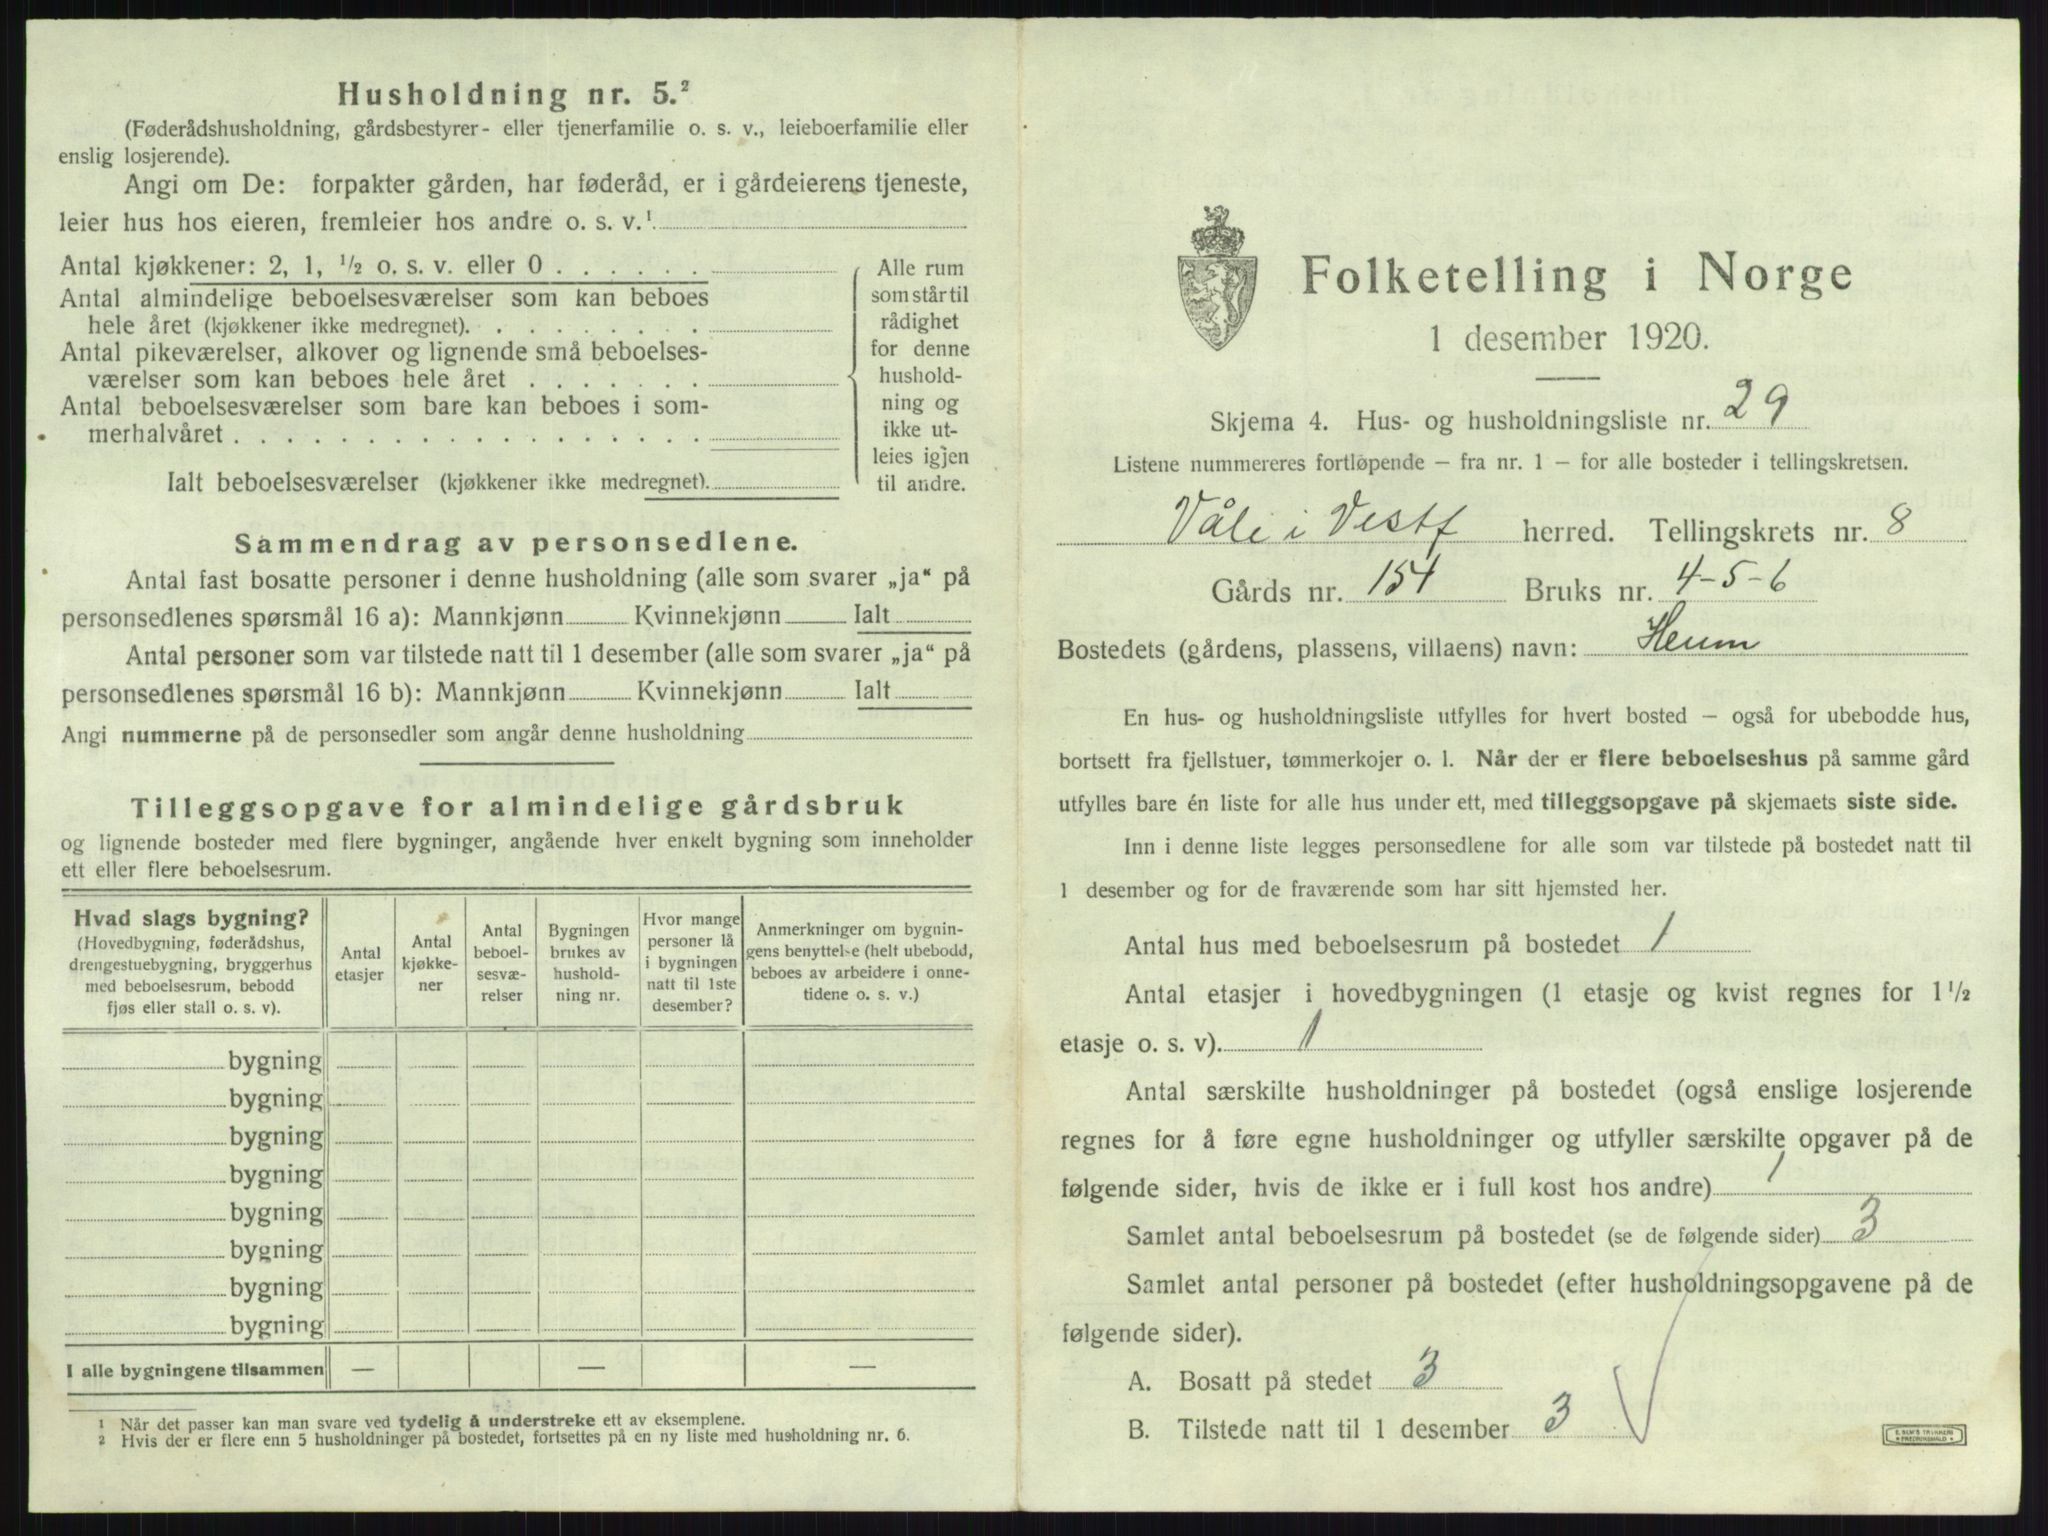 Husholdning nr. 5.²
(Føderådshusholdning, gårdsbestyrer- eller tjenerfamilie o. s. v., leieboerfamilie eller
enslig losjerende).
Angi om De: forpakter gården, har føderåd, er i gårdeierens tjeneste,
leier hus hos eieren, fremleier hos andre o. s. v.¹
Antal kjøkkener: 2, 1, ½ o. s. v. eller 0 . . . . . .
Antal almindelige beboelsesværelser som kan beboes
hele året (kjøkkener ikke medregnet). . . . . . . . .
Antal pikeværelser, alkover og lignende små beboelses-
værelser som kan beboes hele året . . . . . . .
Antal beboelsesværelser som bare kan beboes i som-
merhalvåret . . . . . . . . . . . . . . . . . .
Ialt beboelsesværelser (kjøkkener ikke medregnet).
Alle rum
som står til
rådighet
for denne
hushold-
ning og
ikke ut-
leies igjen
til andre.
Sammendrag av personsedlene.
Antal fast bosatte personer i denne husholdning (alle som svarer „ja“ på
personsedlenes spørsmål 16 a): Mannkjønn Kvinnekjønn Ialt
Antal personer som var tilstede natt til 1 desember (alle som svarer „ja“ på
personsedlenes spørsmål 16 b): Mannkjønn Kvinnekjønn Ialt
Angi nummerne på de personsedler som angår denne husholdning
Tilleggsopgave for almindelige gårdsbruk
og lignende bosteder med flere bygninger, angående hver enkelt bygning som inneholder
ett eller flere beboelsesrum.
Hvad slags bygning?
(Hovedbygning, føderådshus,
drengestuebygning, bryggerhus
med beboelsesrum, bebodd
fjøs eller stall o. s. v).
Antal
etasjer
Antal
kjøkke-
ner
Antal
beboel-
sesvæ-
relser
Bygningen
brukes av
hushold-
ning nr.
Hvor mange
personer lå
i bygningen
natt til 1ste
desember?
Anmerkninger om bygnin-
gens benyttelse (helt ubebodd,
beboes av arbeidere i onne-
tidene o. s. v.)
bygning
bygning
bygning
bygning
bygning
bygning
bygning
bygning
I alle bygningene tilsammen — — —
¹ Når det passer kan man svare ved tydelig å understreke ett av eksemplene.
² Hvis der er flere enn 5 husholdninger på bostedet, fortsettes på en ny liste med husholdning nr. 6.
Folketelling i Norge
1 desember 1920.
Skjema 4. Hus- og husholdningsliste nr. 29
Listene nummereres fortløpende – fra nr. 1 – for alle bosteder i tellingskretsen.
Våle i Vestf herred. Tellingskrets nr. 8
Gårds nr. 154 Bruks nr. 4-5-6
Bostedets (gårdens, plassens, villaens) navn: Heum
En hus- og husholdningsliste utfylles for hvert bosted – også for ubebodde hus,
bortsett fra fjellstuer, tømmerkojer o. l. Når der er flere beboelseshus på samme gård
utfylles bare én liste for alle hus under ett, med tilleggsopgave på skjemaets siste side.
Inn i denne liste legges personsedlene for alle som var tilstede på bostedet natt til
1 desember og for de fraværende som har sitt hjemsted her.
Antal hus med beboelsesrum på bostedet 1
Antal etasjer i hovedbygningen (1 etasje og kvist regnes for 1½
etasje o. s. v). 1
Antal særskilte husholdninger på bostedet (også enslige losjerende
regnes for å føre egne husholdninger og utfyller særskilte opgaver på de
følgende sider, hvis de ikke er i full kost hos andre) 1
Samlet antal beboelsesrum på bostedet (se de følgende sider) 3
Samlet antal personer på bostedet (efter husholdningsopgavene på de
følgende sider).
A. Bosatt på stedet 3
B. Tilstede natt til 1 desember 3